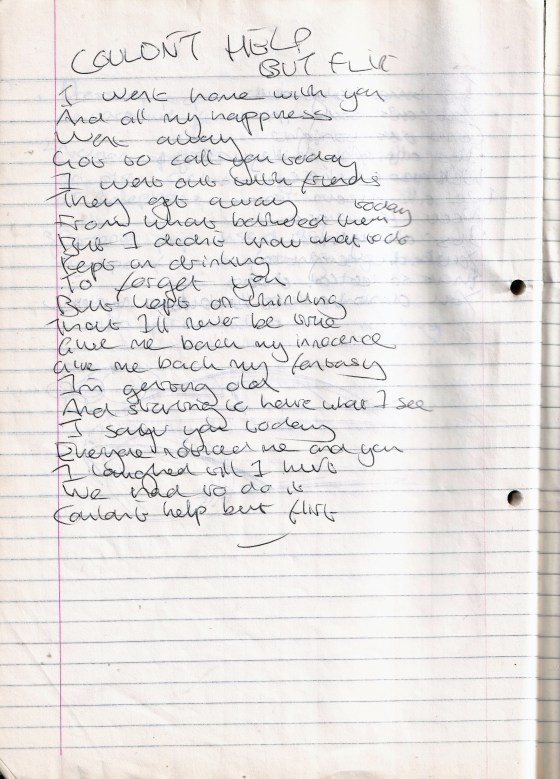 COULDN'T HELP
BUT FLIRT
I went home with you
And all my happiness
Went away
Got to call you today
I went out with friends
They get away today
From what bothered them
But I didn't know what to do
Kept on drinking
To forget you
But kept on thinking
That I'll never be true
Give me back my innocence
Give me back my fantasy
I'm getting old
And starting to hate what I see
I saw you today
Everyone noticed me and you
I laughed till I hurt
We had to do it
Couldn't help but flirt